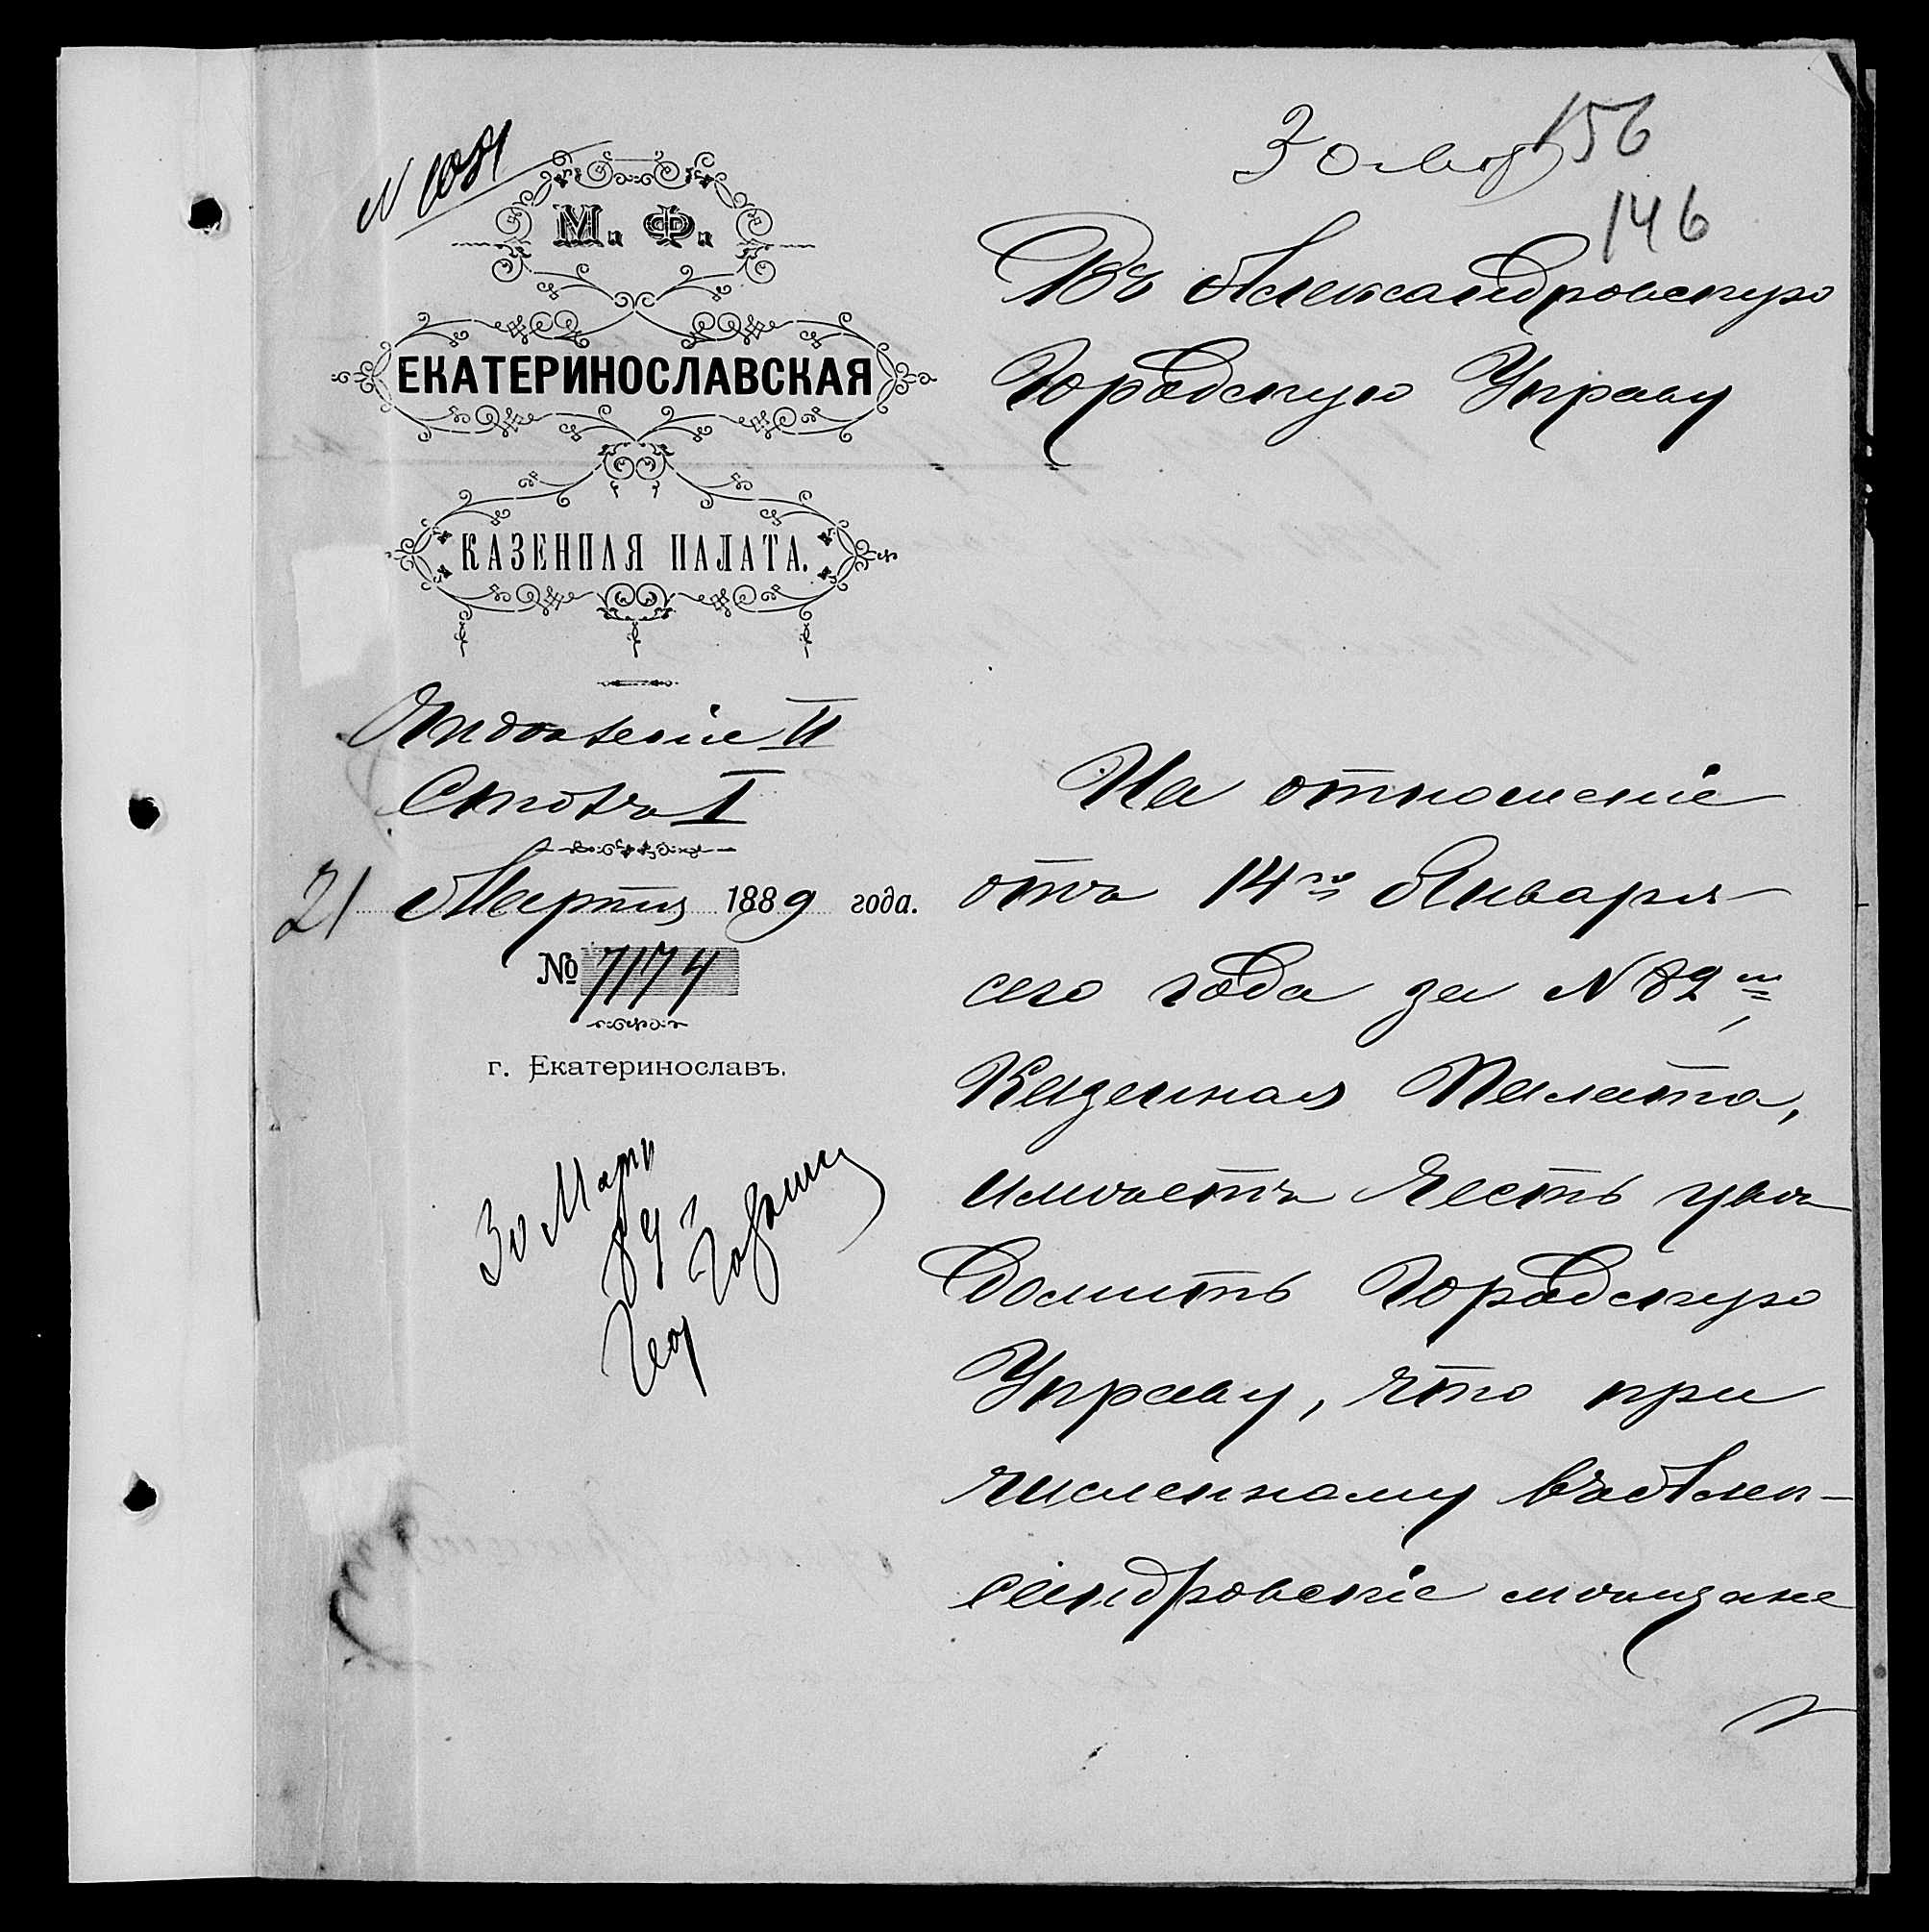 N 1081
156
146
М. Ф.
ЕКАТЕРИНОСЛАВСКАЯ
КАЗЕННАЯ ПАЛАТА.
Отдѣленіе II
Столъ I
21 Марта 1889 года.
№ 7174
г. Екатеринославъ.
30 Март
89 г
Въ Александровскую
Городскую Управу
На отношеніе
отъ 14го Января
сего года за N 82м,
Казенная Палата,
имѣетъ честь увѣ
домить Городскую
Управу, что при
численному въ Алек-
сандровскіе мѣщане